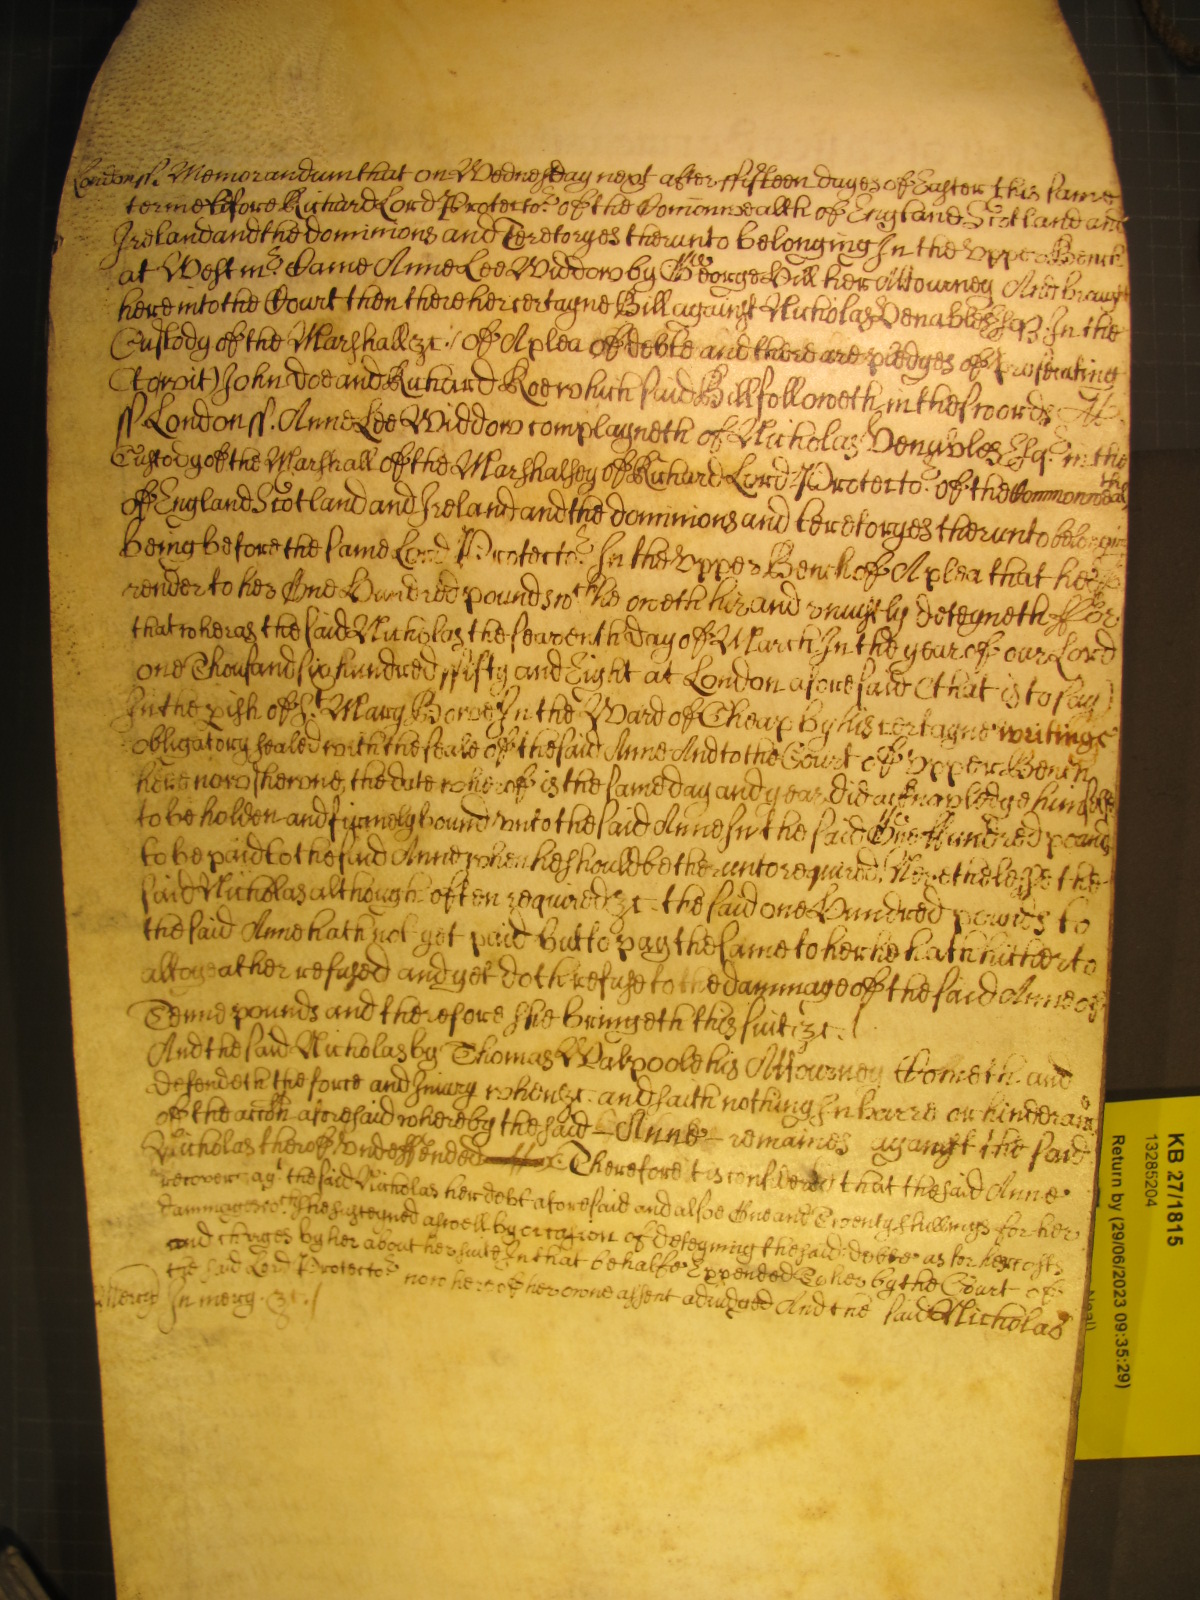 London ss. Memorandum that on Wednesday next after fifteen dayes of Easter this same
terme before Richard Lord Protector of the Comonwealth of England Scotland and
Ireland and the dominions and Teretoryes therunto belonging In the upper Bench
at Westmr Came Anne Lee Widdow by George Hill her Attourney And brought
here into the Court then there her certayne Bill against Nicholas Venables Esqr. In the
Custody of the Marshall &c. of A plea of debte and there are pledges of prosecuting
(to wit) John Doe and Richard Roe which said Bill followeth in these words
ss. London ss. Anne Lee Widdow complayneth of Nicholas Venables Esqr. in the
Custody of the Marshall of the Marshalsey of Richard Lord Protector of the Commonwealth
of England Scotland and Ireland and the dominions and teretoryes therunto belonging
being before the same Lord Protector In the upper Bench of A plea that hee
render to her One Hundred pounds wch he oweth hir and uniustly deteyneth ffor
that wheras the said Nicholas the seaventh day of March In the year of our Lord
one Thousand six hundred ffifty and Eight at London aforesaid (that is to say)
In the pish of St. Mary Bowe In the Ward of Cheap by his certayne writinge
obligatory sealed with the seale of the said Anne And to the Court of upper Bench
here now showne, the date wherof is the same day and year, did acknowledge himselfe
to be holden and firmely bound unto the said Anne In the said One Hundred pounds
to be paid to the said Anne when he should be therunto required. Neverthelesse the
said Nicholas although often required &c. the said one Hundred pounds to
the said Anne hath not yet paid but to pay the same to her he hath hitherto
altogeather refused and yet doth refuse to the dammage of the said Anne of
Tenne pounds and therefore she bringeth this suit &c.
And the said Nicholas by Thomas Walpoole his Attourney Cometh and
defendeth the force and Iniury when &c. and saith nothing In barre or hinderance
of the accon aforesaid whereby the said Anne remaines against the said
Nicholas theroff undeffended Therefore it is considered that the said Anne
recover agt the said Nicholas her debt aforesaid and alsoe One and Twenty shillings for her
dammages wch she susteyned aswell by occasion of deteyning the said debte as for her costs
and charges by her about her suite In that behalfe Expended To her by the Court of
the said Lord Protector now here of her owne assent adiudged And the said Nicholas
Mercy In mercy. &c.
KB 27/1815
13285204
Return by (29/06/2023 09:35:29)